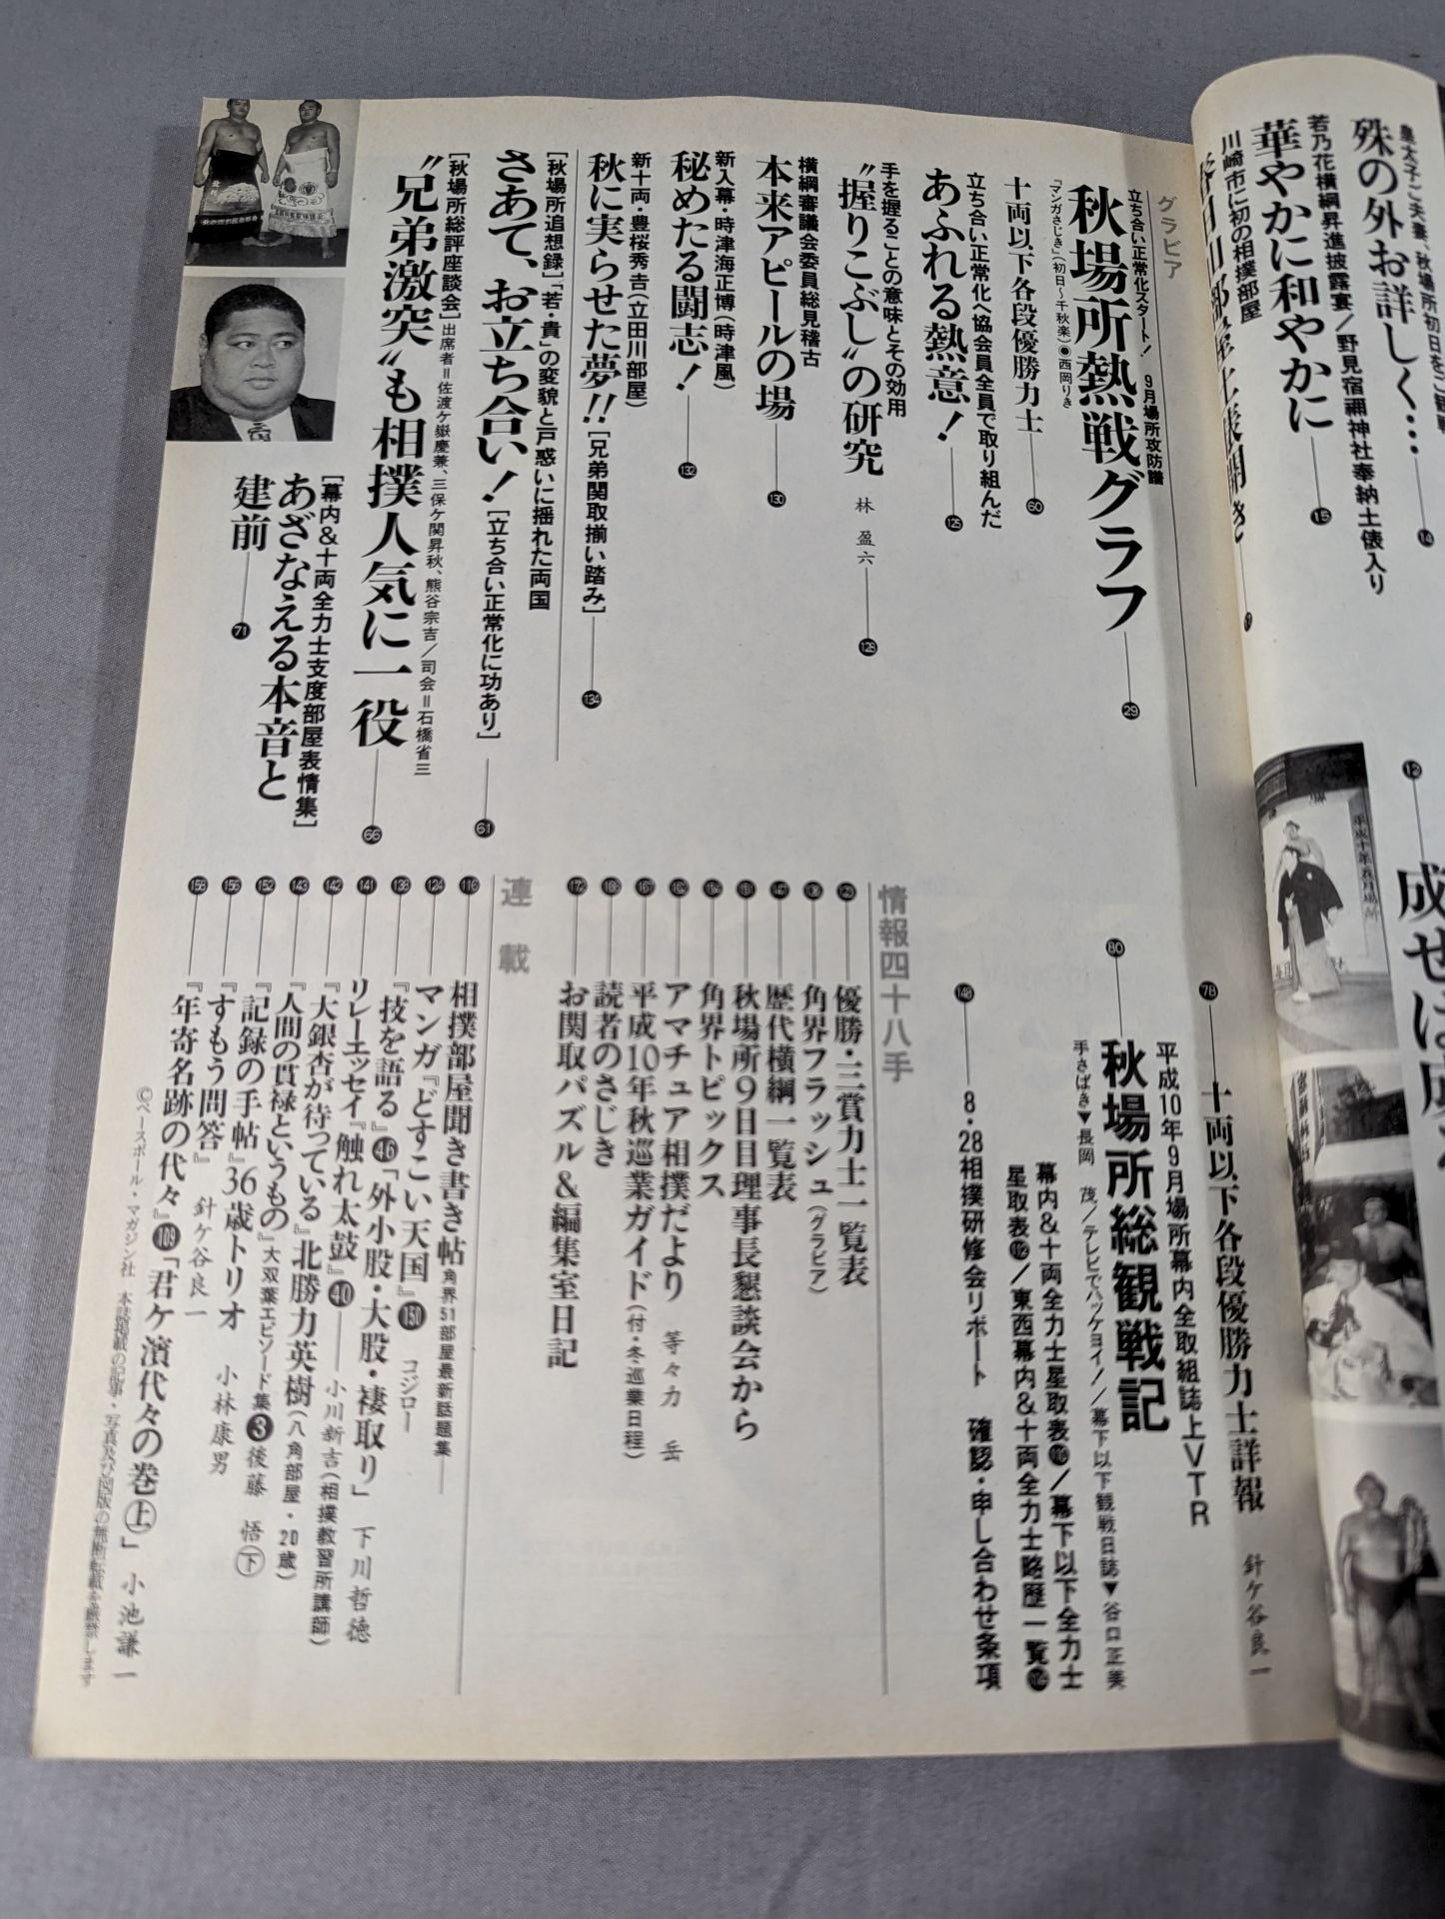 殊の外お詳しく…
14
若乃花横綱昇進披露宴／野見宿禰神社奉納土俵入り
華やかに和やかに
15
川崎市に初の相撲部屋
12
成せば成
グラビア
立ち合い正常化スタート! 9月場所攻防譜
秋場所熱戦グラフ
29
『マンガさじき』(初日〜千秋楽)◉西岡りき
十両以下各段優勝力士
60
立ち合い正常化へ協会員全員で取り組んだ
あふれる熱意!
125
手を握ることの意味とその効用
“握りこぶし”の研究 林 盈六
126
横綱審議会委員総見稽古
本来アピールの場
130
新入幕・時津海正博(時津風)
秘めたる闘志!
132
新十両・豊桜秀𠮷(立田川部屋)
秋に実らせた夢!![兄弟関取揃い踏み]
134
[秋場所追想録]「若・貴」の変貌と戸惑いに揺れた両国
さあて、お立ち合い![立ち合い正常化に功あり]
61
[秋場所総評座談会]出席者＝佐渡ケ嶽慶兼、三保ケ関昇秋、熊谷宗吉／司会＝石橋省三
“兄弟激突”も相撲人気に一役
66
[幕内&十両全力士支度部屋表情集]
あざなえる本音と
建前
71
78
十両以下各段優勝力士詳報 針ケ谷良一
平成10年9月場所幕内全取組誌上VTR
80
秋場所総観戦記
手さばき▼長岡 茂／テレビでハッケヨイ!／幕下以下観戦日誌▼谷口正美
幕内&十両全力士星取表／幕下以下全力士
星取表／東西幕内&十両全力士略歴一覧
148
8・28相撲研修会リポート 確認・申し合わせ条項
情報四十八手
優勝・三賞力士一覧表
角界フラッシュ(グラビア)
歴代横綱一覧表
秋場所9日目理事長懇談会から
角界トピックス
アマチュア相撲だより 等々力 岳
平成10年秋巡業ガイド(付・冬巡業日程)
読者のさじき
お関取パズル&編集室日記
連載
相撲部屋聞き書き帖 角界51部屋最新話題集
124
マンガ『どすこい天国』150 コジロー
『技を語る』46「外小股・大股・褄取り」 下川哲徳
141
リレーエッセイ『触れ太鼓』40 小川新吉(相撲教習所講師)
142
『大銀杏が待っている』北勝力英樹(八角部屋・20歳)
143
『人間の貫禄というもの』大双葉エピソード集3 後藤 悟 下
152
『記録の手帖』36歳トリオ 小林康男
『すもう問答』 針ケ谷良一
『年寄名跡の代々』109「君ケ濱代々の巻 上」 小池謙一
©ベースボール・マガジン社 本誌掲載の記事・写真及び図版の無断転載を厳禁します